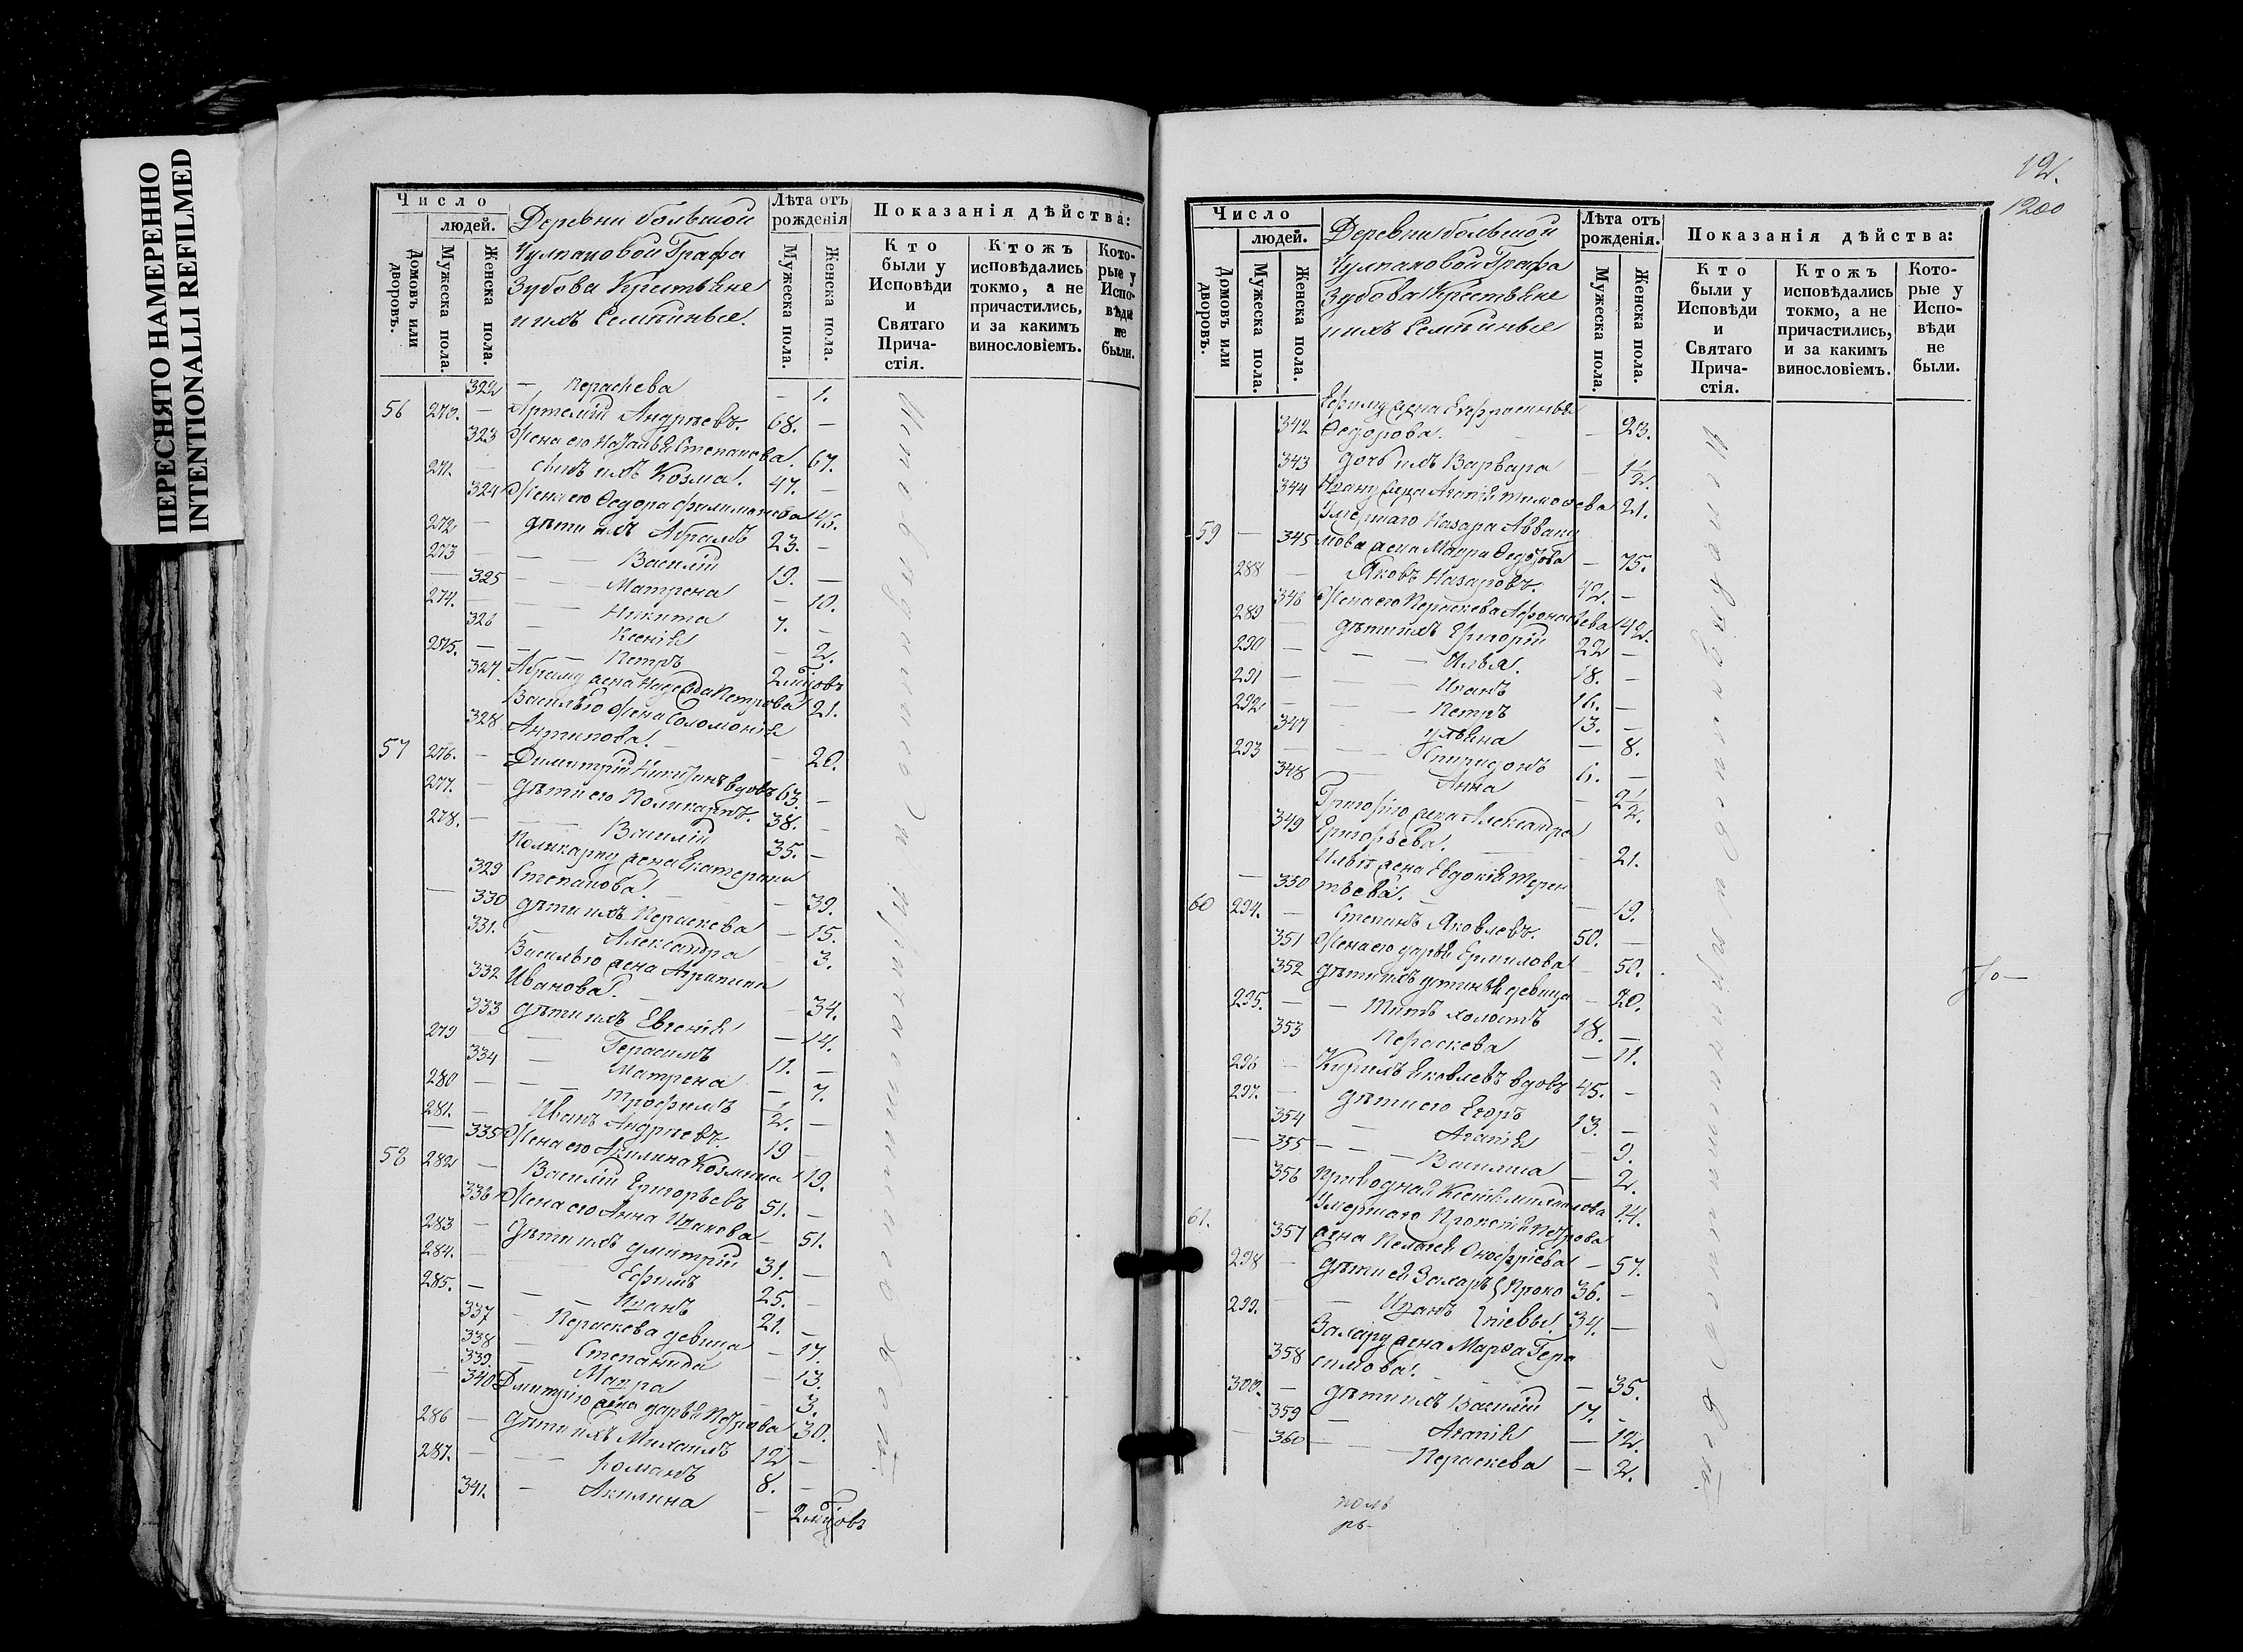 ПЕРЕСНЯТО НАМЕРЕННО
INTENTIONALLI REFILMED
Число
людей.
Домовъ или дворовъ.
Мужеска пола.
Женска пола.
Деревни большой
Чулпановой Графа
Зубова Крестьяне
и ихъ Семѣйные.
Лѣта отъ рожденія
Мужеска пола.
Женска пола.
Показанія дѣйства:
Кто были у Исповѣди и Святаго Прича-стія.
Ктожъ исповѣдались токмо, а не причастились, и за какимъ винословіемъ.
Кото-рые у Испо-вѣди не были.
322 — Параскева — 1.
56 270. — Артемій Андрѣевъ. 68. —
323 Жена его Наталья Степанова. 67.
271. — сынъ ихъ Козма. 47. —
324 Жена его Ѳедора Филимонова 45.
272 — дѣти ихъ Абрамъ 23. —
273 — — Василій 19. —
— 325 — — Матрена — 10.
274. — — Никита 7. —
326 — Ксенія — 2.
275. — — — Петръ 2 мѣсцовъ
327. Абраму жена Надежда Петрова 21.
Василью жена Соломонія
328 Антипова. — — 20.
57 276. — Димитрій Никитинъ вдовъ 63. —
277. — дѣти его Поликарпъ. 38. —
278. — — Василій 35. —
Поликарпу жена Екатерина
329 Степанова. — — 39.
— 330 дѣти ихъ Параскева — 15.
331. — Александра — 3.
Василью жена Агрипина
332 Иванова. — — 34.
333 дѣти ихъ Евгенія — 14.
279 — — Герасимъ 11. —
334 — Матрена — 7.
280 — — — Трофимъ 1/2. —
281. — Иванъ Андрѣевъ. 19 —
— 335 Жена его Акилина Козмина 19.
58 282 — Василій Григорьевъ 51. —
336 Жена его Анна Иванова — 51.
283 — дѣти ихъ Дмитрій 31. —
284. — — Ефимъ 25. —
285. — — Иванъ 21. —
337 — Параскева девица — 17.
338 — Степанида — 13.
339. — Мавра — 3.
— 340 Дмитрію жена Дарья Петрова 30.
286 — дѣти ихъ Михаилъ 12 —
287. — — Романъ 8. —
341. — Акилина — 2 мѣсцовъ
Исповѣдались и причастились всѣ
12.
1200
Число
людей.
Домовъ или дворовъ.
Мужеска пола.
Женска пола.
Деревни большой
Чулпановой Графа
Зубова Крестьяне
и ихъ Семѣйные
Лѣта отъ рожденія.
Мужеска пола.
Женска пола.
Показанія дѣйства:
Кто были у Исповѣди и Святаго Прича-стія.
Ктожъ исповѣдались токмо, а не причастились, и за какимъ винословіемъ.
Кото-рые у Испо-вѣди не были.
Ефиму жена Евфросинья
342 Ѳедорова. — — 23.
343 дочь ихъ Варвара — 1 1/2.
344 Ивану жена Агапія Тимоѳева 21.
Умершаго Назара Авваку
59 — 345 мова жена Мавра Ѳедотова — 75.
288 — Яковъ Назаровъ. 42. —
346 Жена его Параскева Афонасьева 42.
289 — дѣти ихъ Григорій 22 —
290 — — Илья. 18. —
291 — — Иванъ 16. —
292 — — Петръ 13. —
347 — Ульяна — 8.
293 — — Спиридонъ 6. —
348 — Анна — 2 1/2.
Григорію жена Александра
349 Григорьева. — — 21.
Ильѣ жена Евдокія Терен
— 350 тьева. — — 19.
60 294. — Степанъ Яковлевъ. 50. —
351 Жена его Дарья Ермилова — 50.
352 дѣти ихъ Устинья девица — 20.
295. — — Титъ холостъ 18. —
353 Параскева — 11.
296 — Кирилъ Яковлевъ вдовъ 45. —
297. — дѣти его Егоръ 13. —
354 — Агапія — 9.
— 355 — — Василиса — 2.
356 14.
61. Умершаго Прокопія Петрова
357 жена Пелагея Онофріева — 57.
298 — дѣти ей Захаръ Проко 36. —
299. — — Иванъ піевы. 34. —
Захару жена Марѳа Гера
358 симова. — — 35.
300. — дѣти ихъ Василій 17. —
359 — Агапія — 12.
— 360 — — Параскева — 2.
Исповѣдались и причастились всѣ